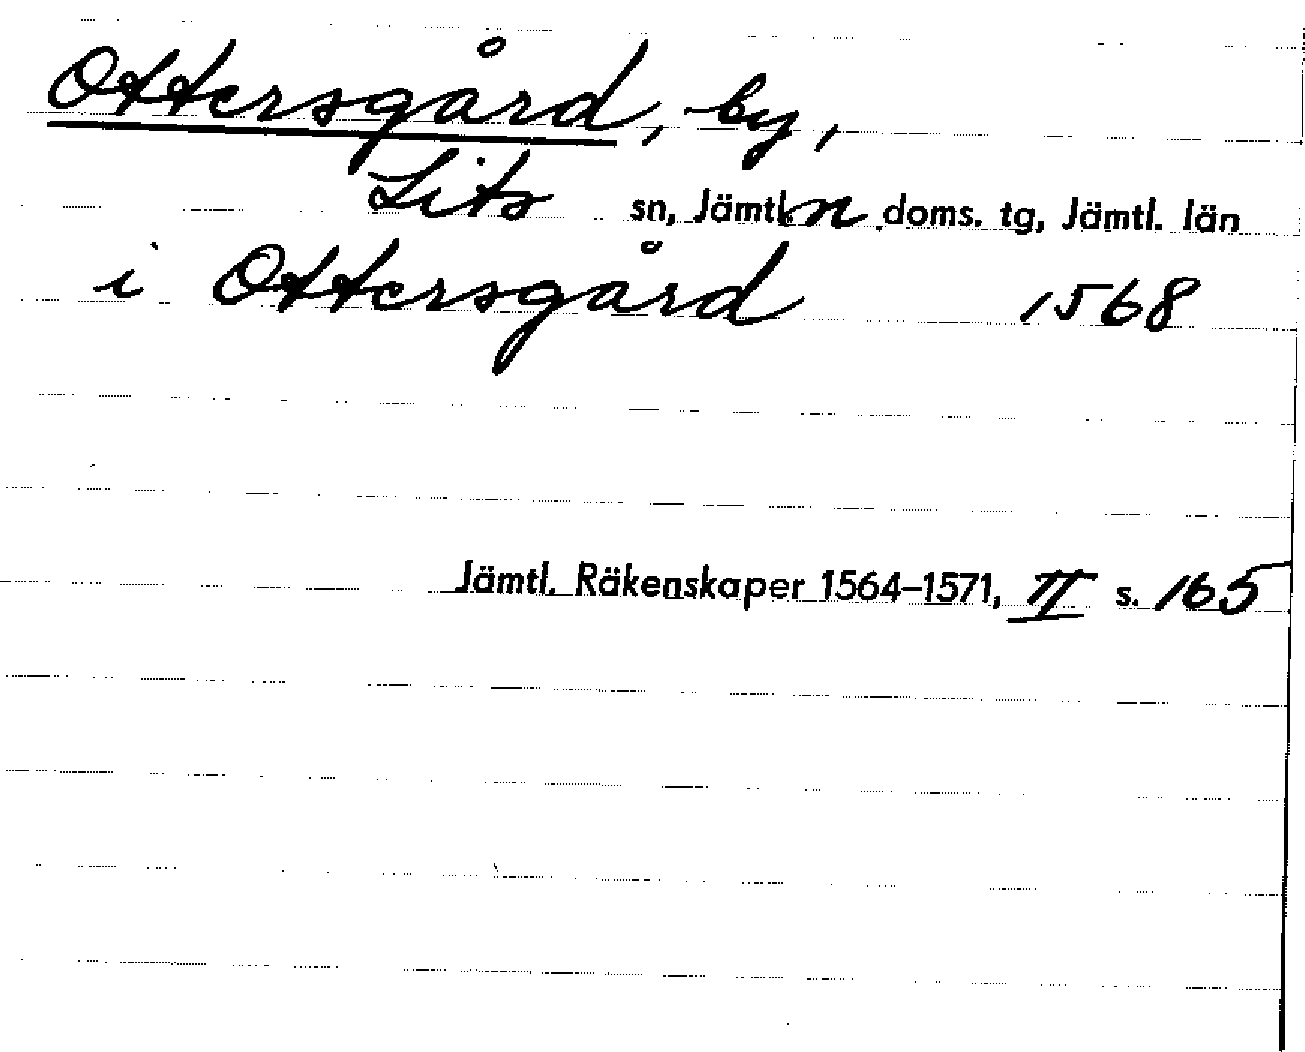 Ottersgård, by,
Lits sn, Jämtl. n doms. tg, Jämtl. län
i Ottersgård 1568
Jämtl. Räkenskaper 1564–1571, II s. 165